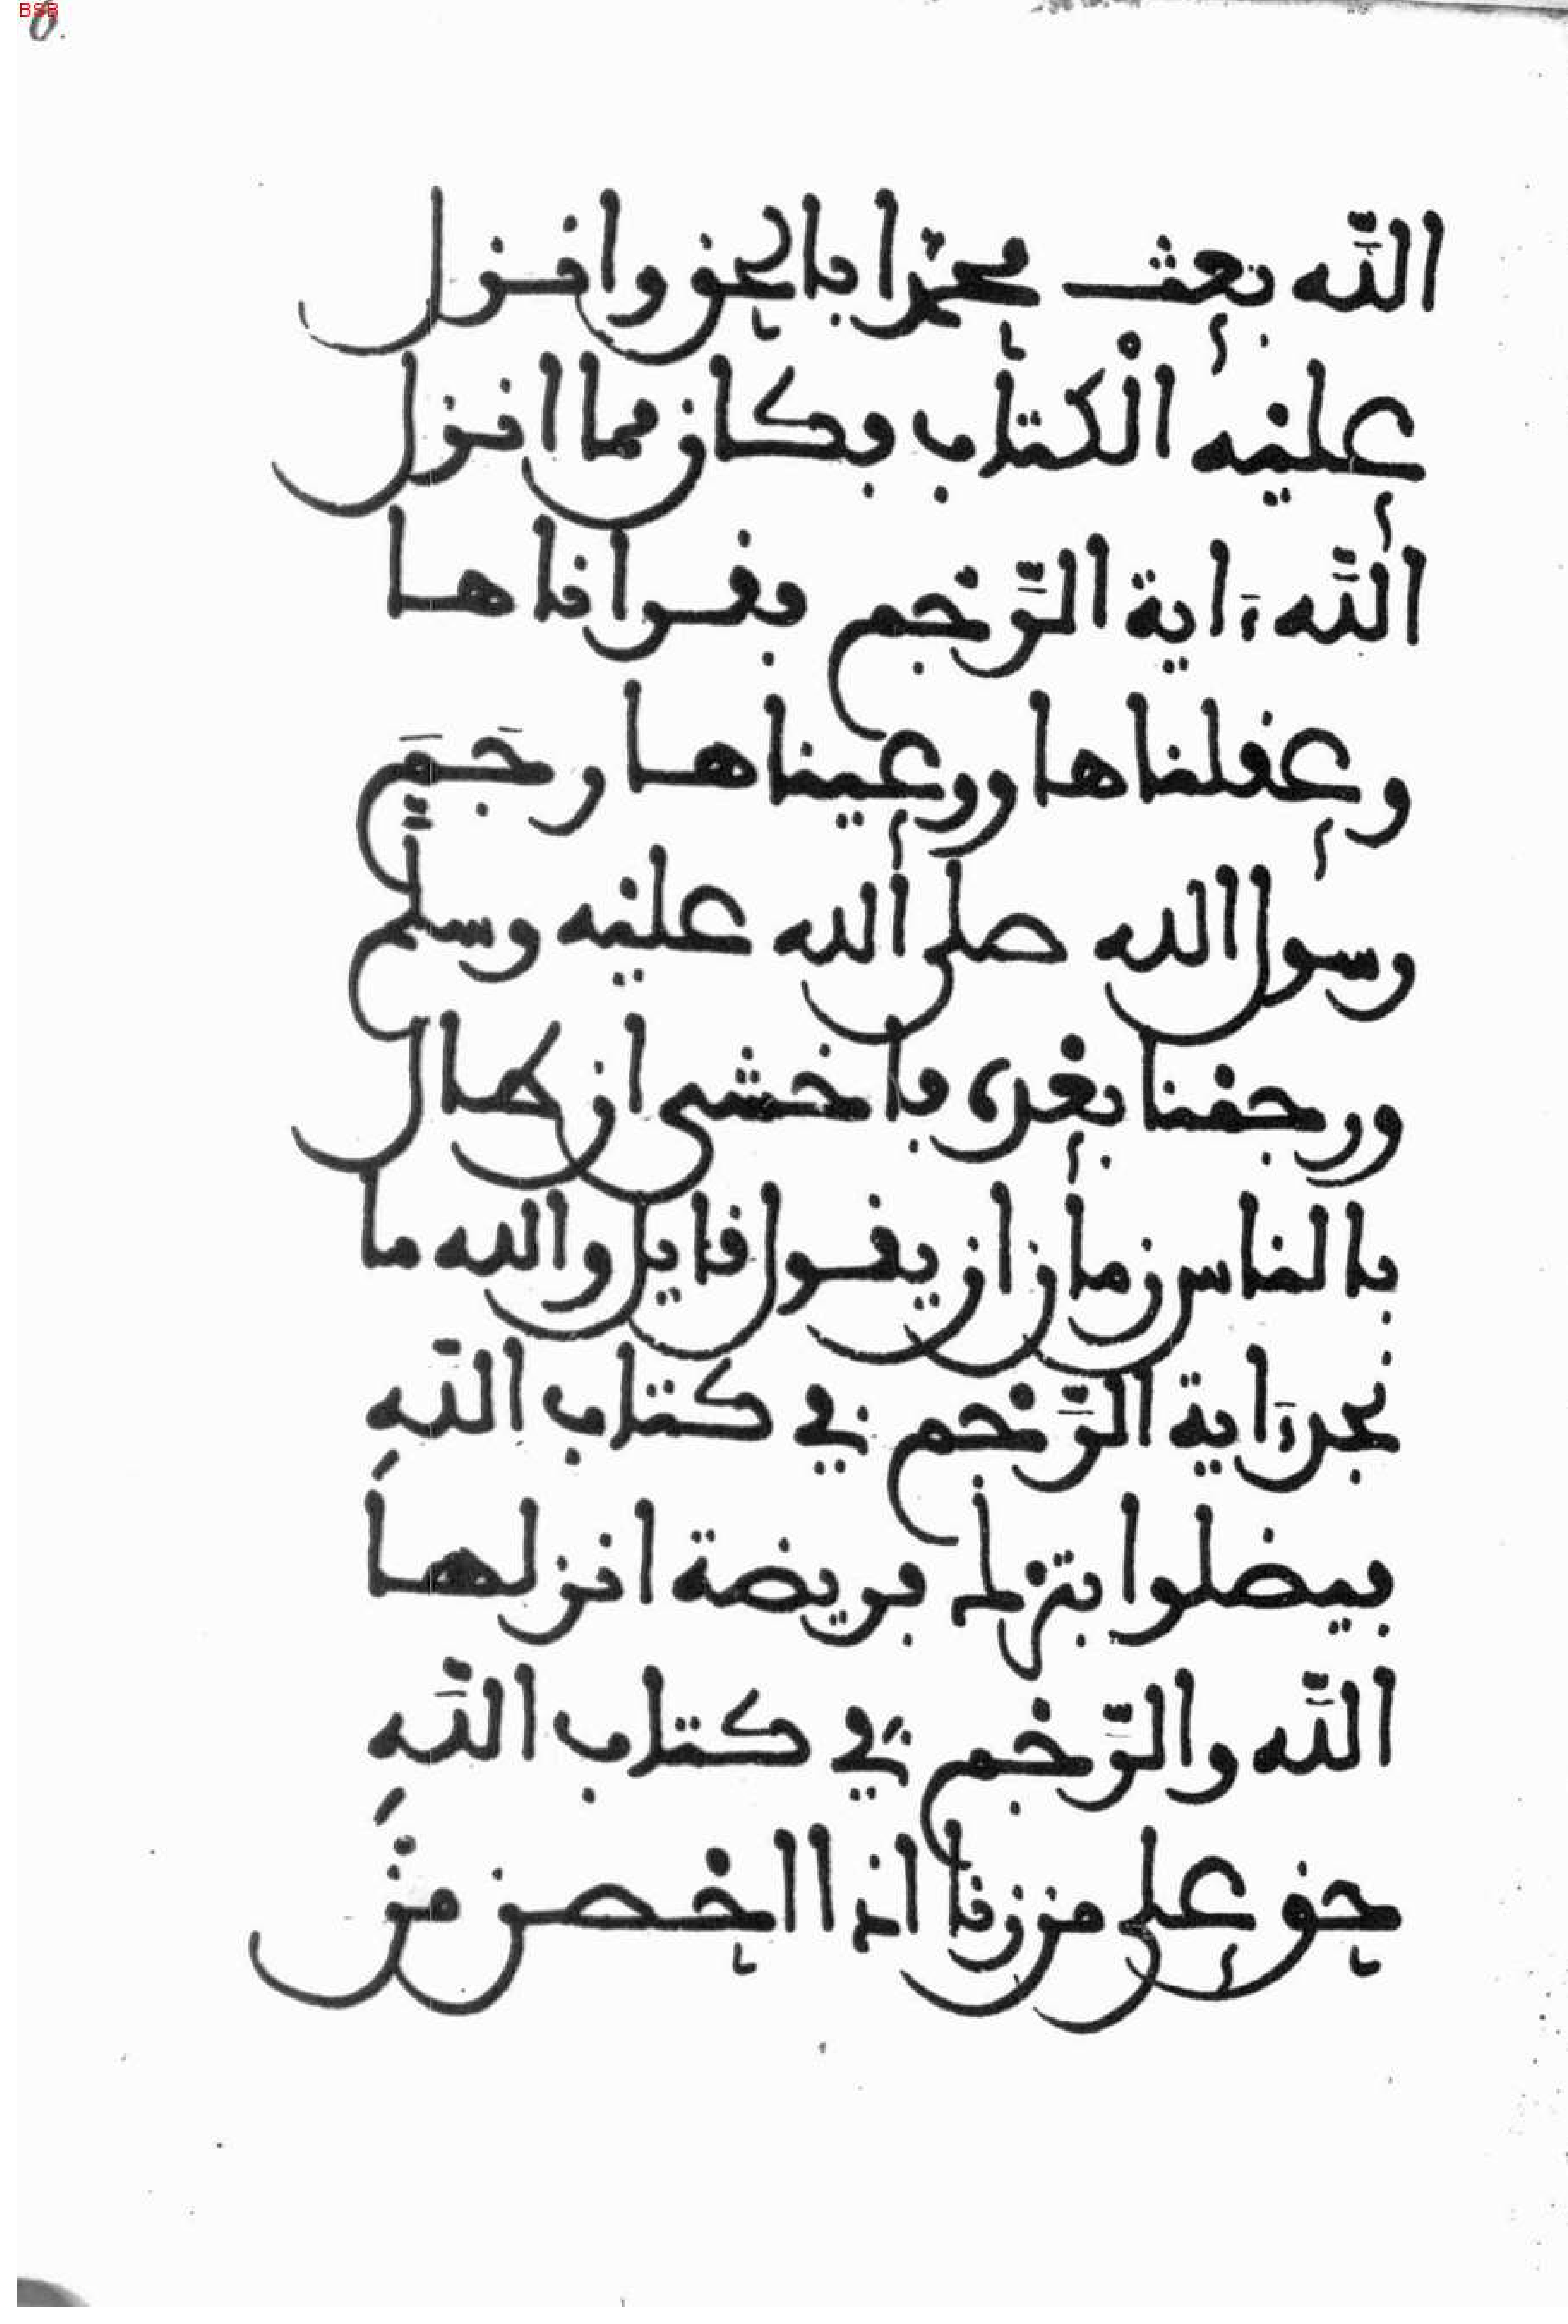 الله بعث محمدا بالحق وانزل
عليه الْكتاب فكان مما انزل
اللَّه ءاية الرَّجم فقراناها
وعقلناها ووعيناها رجَمَ
رسول الله صلى الله عليه وسلم
ورجمنا بعْده فاخشى ان طال
بالناس زمان ان يقول قايل والله ما
نجد ءاية الرَّجم في كتاب اللهِ
فيضلوا بترك فريضة انزلها
اللَّه والرَّجم في كتاب اللَّهِ
حق على من زنا اذا احصن منَ